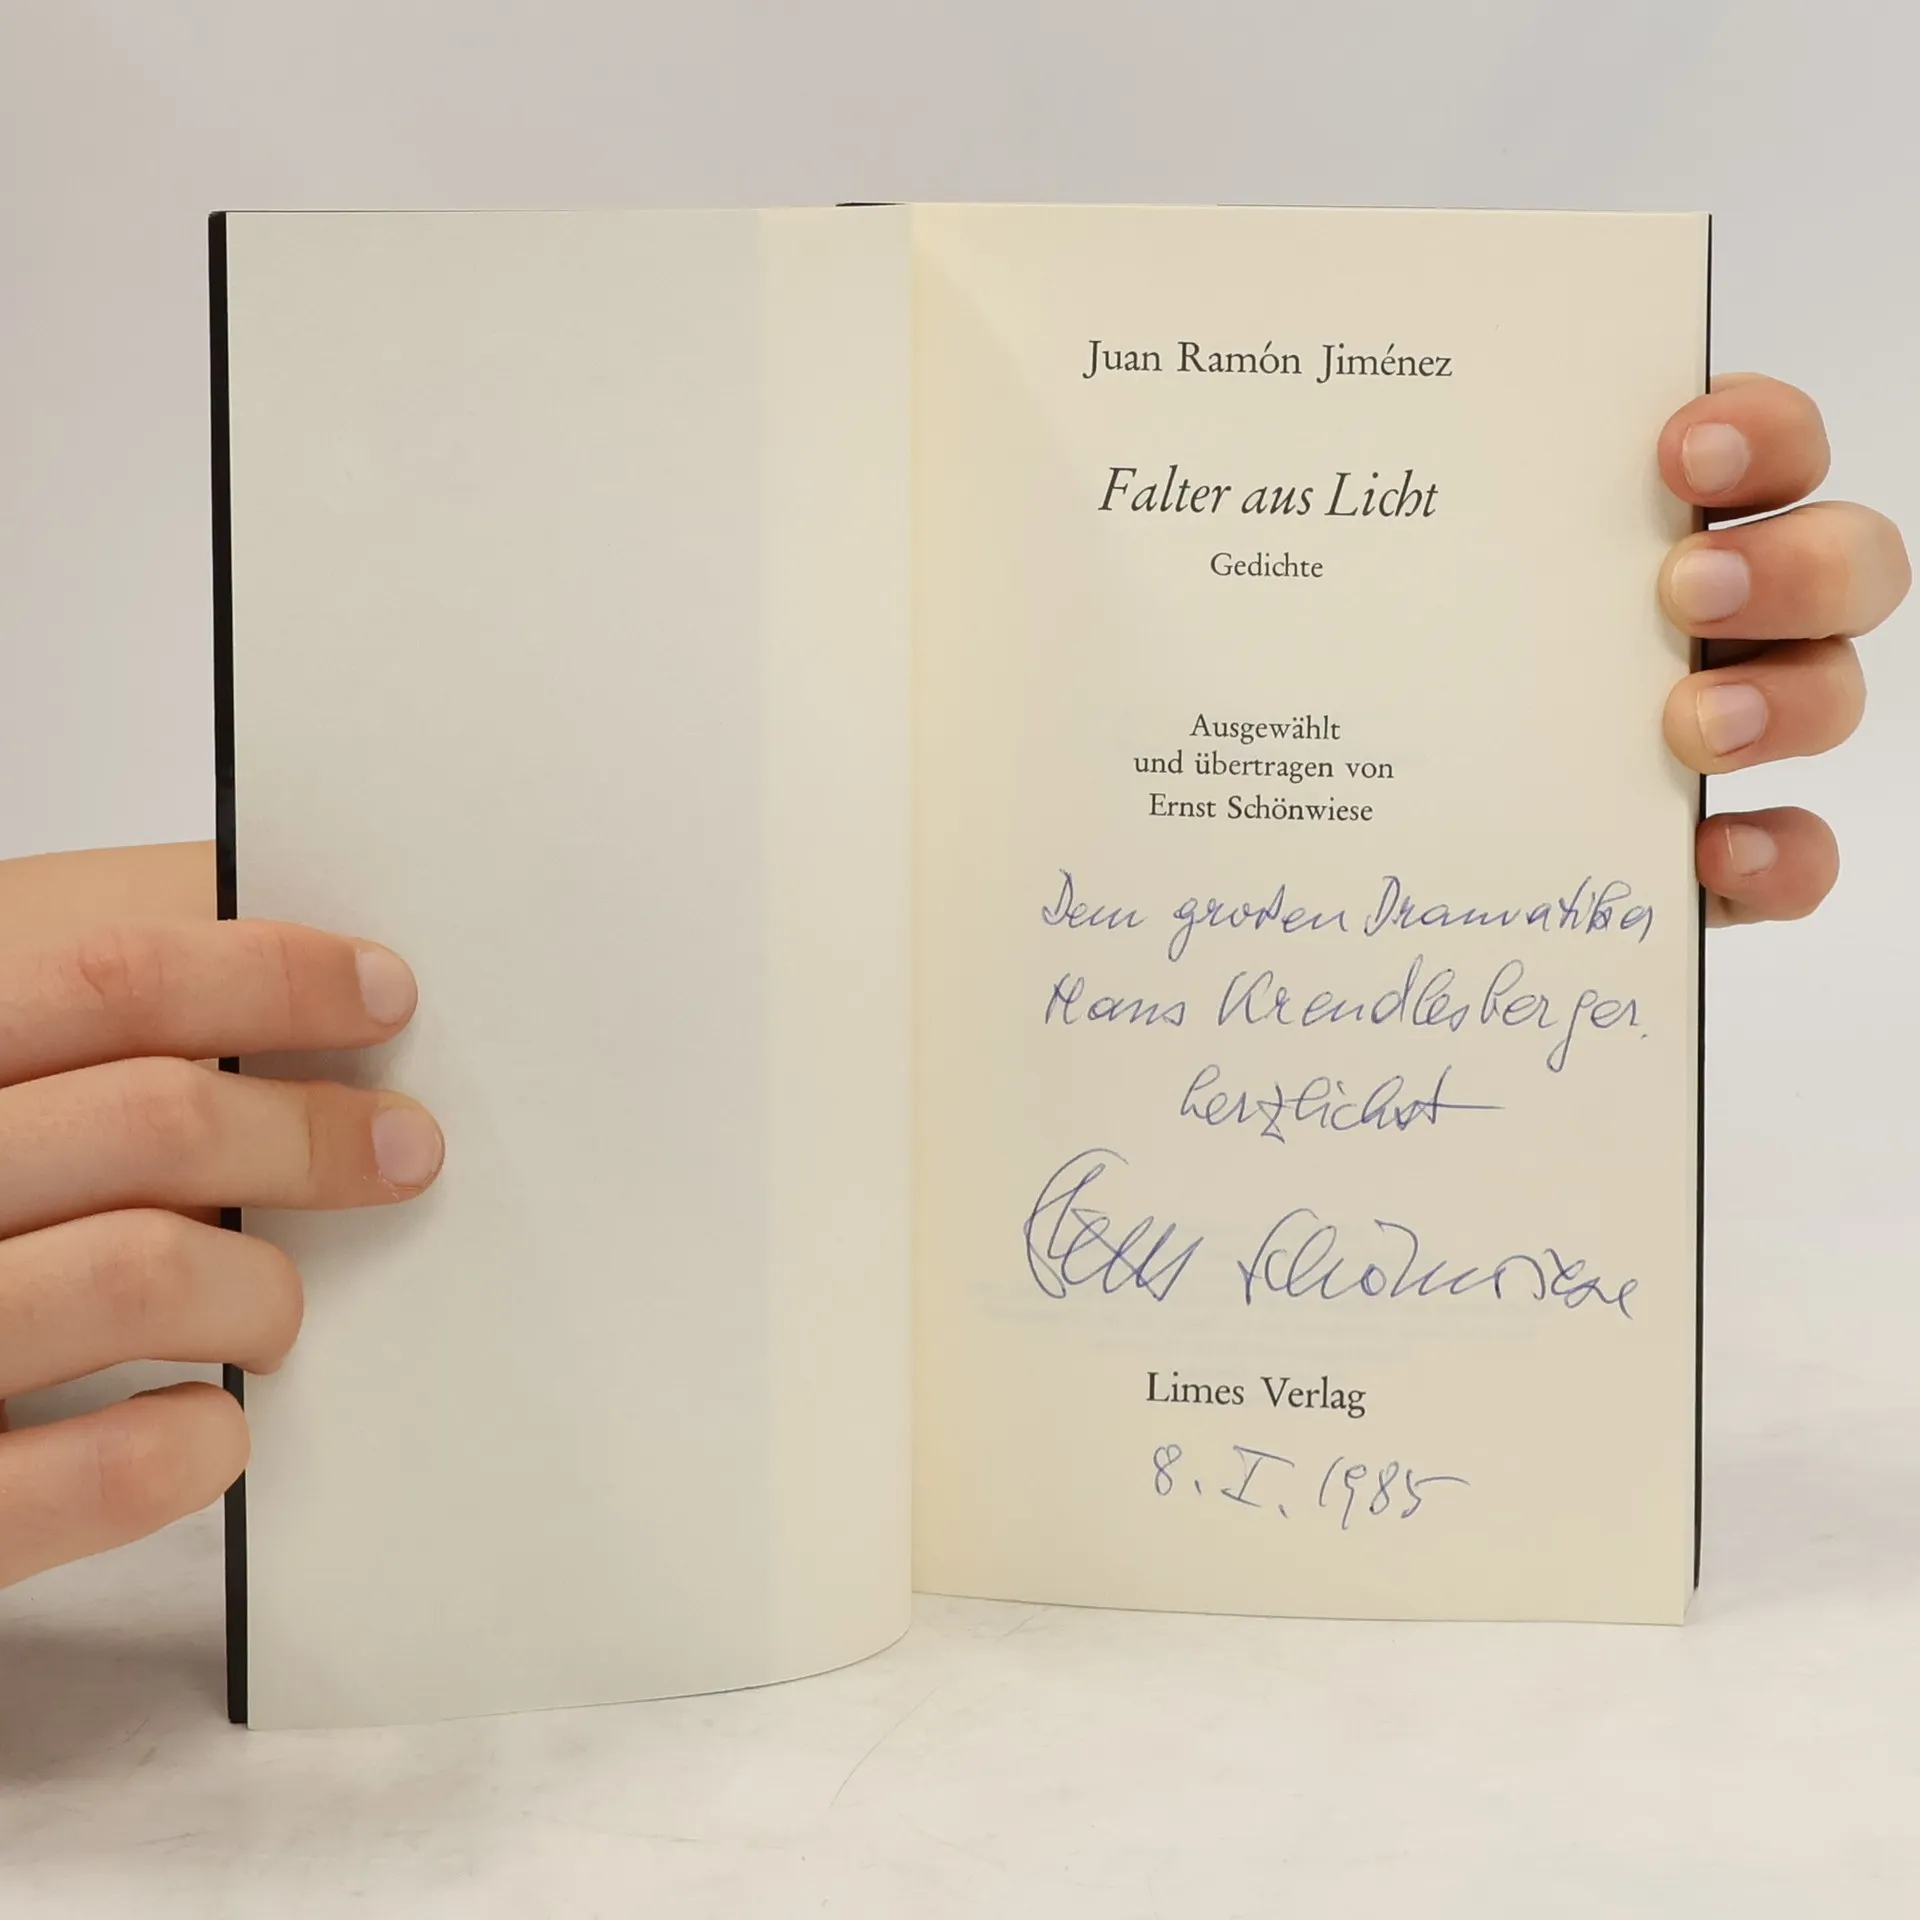 Juan Ramón Jiménez
Falter aus Licht
Gedichte
Ausgewählt
und übertragen von
Ernst Schönwiese
Dem großen Dramatiker
Hans Krendlesberger
herzlichst
Ernst Schönwiese
Limes Verlag
8. I. 1985